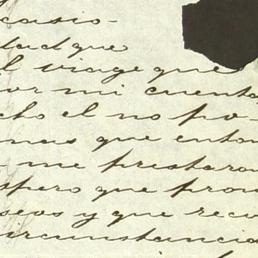 casio-
dad que
el viage que
por mi cuenta
cho el no po-
mas que enton
me prestaron
spero que pron
seos y que recu
circunstancia